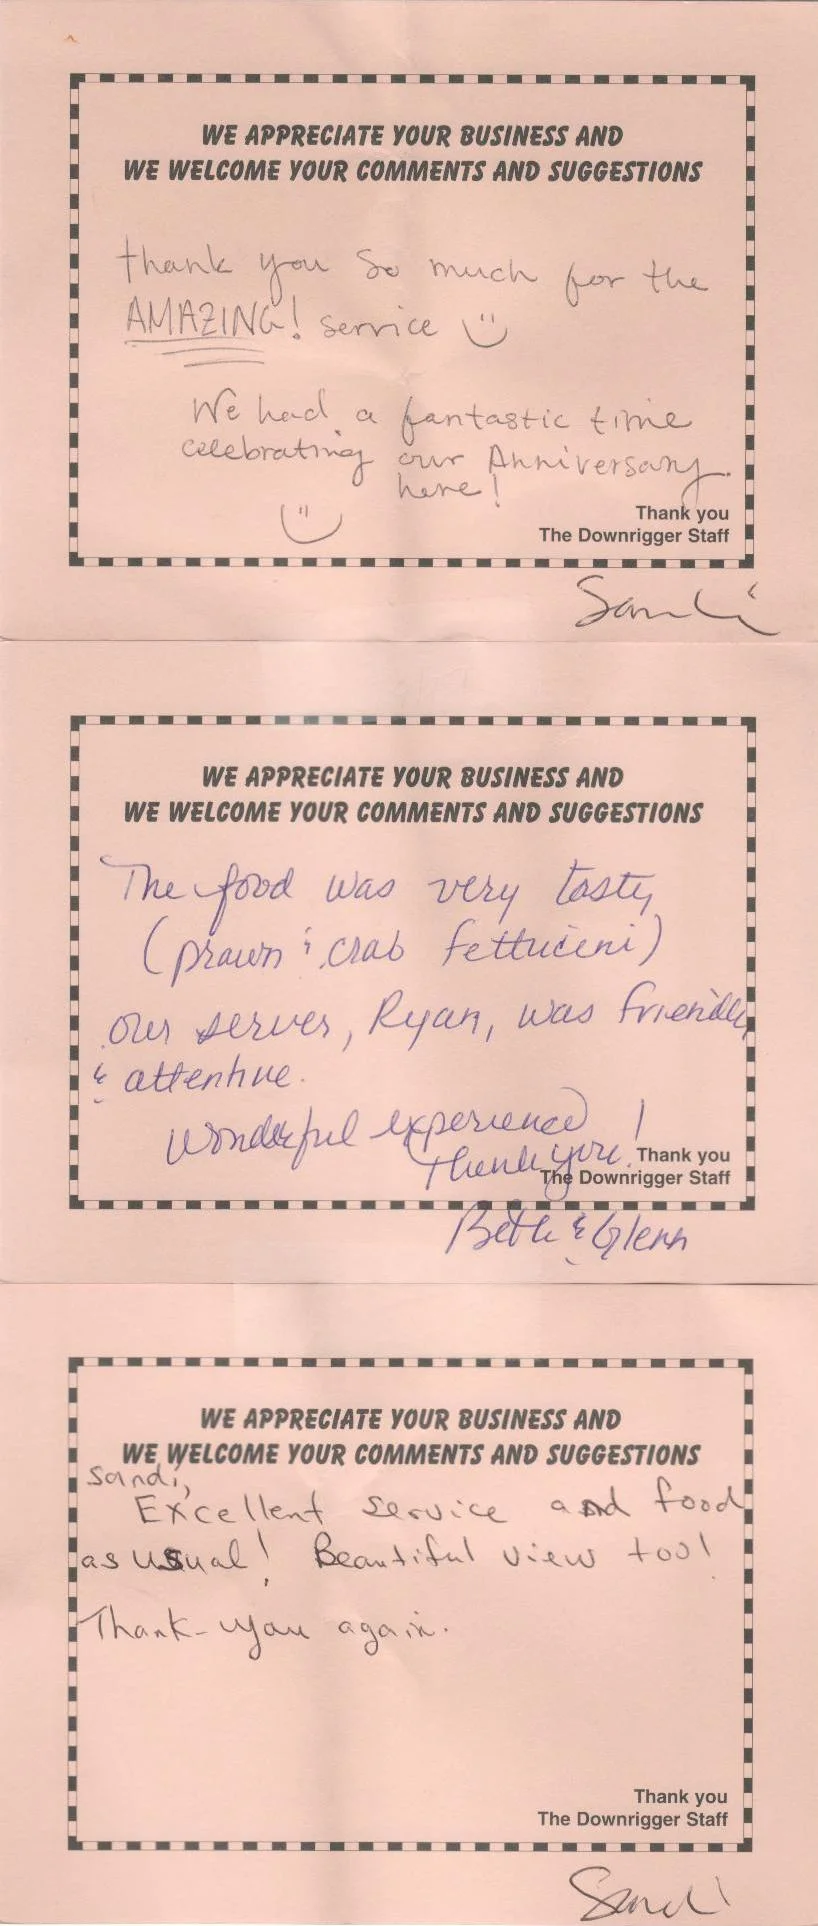 WE APPRECIATE YOUR BUSINESS AND
WE WELCOME YOUR COMMENTS AND SUGGESTIONS
thank you so much for the
AMAZING! service
We had a fantastic time
celebrating our Anniversary
here!
Thank you
The Downrigger Staff
Sandi
WE APPRECIATE YOUR BUSINESS AND
WE WELCOME YOUR COMMENTS AND SUGGESTIONS
The food was very tasty
(prawn & crab fettucini)
our server, Ryan, was friendly
& attentive.
Wonderful experience!
Thank you!
Thank you
The Downrigger Staff
Beth & Glenn
WE APPRECIATE YOUR BUSINESS AND
WE WELCOME YOUR COMMENTS AND SUGGESTIONS
Sandi,
Excellent service and food
as usual! Beautiful view too!
Thank-you again.
Thank you
The Downrigger Staff
Sandi